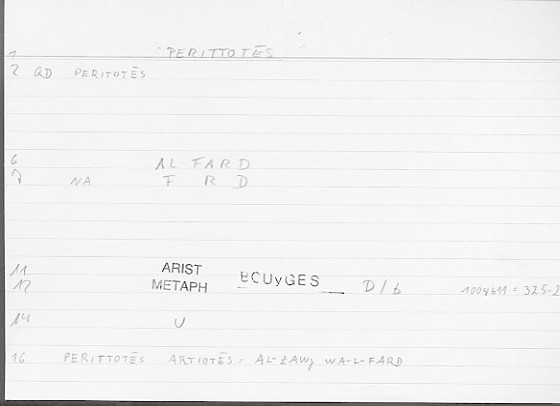 1 PERITTOTĒS
2 QD PERITOTĒS
6 AL-FARD
7 NA F R D
11 ARIST
12 METAPH BCUyGES D/t 1004b11 = 325.2
14 U
16 PERITTOTĒS ARTIOTĒS = AL-ZAWJ WA-L-FARD